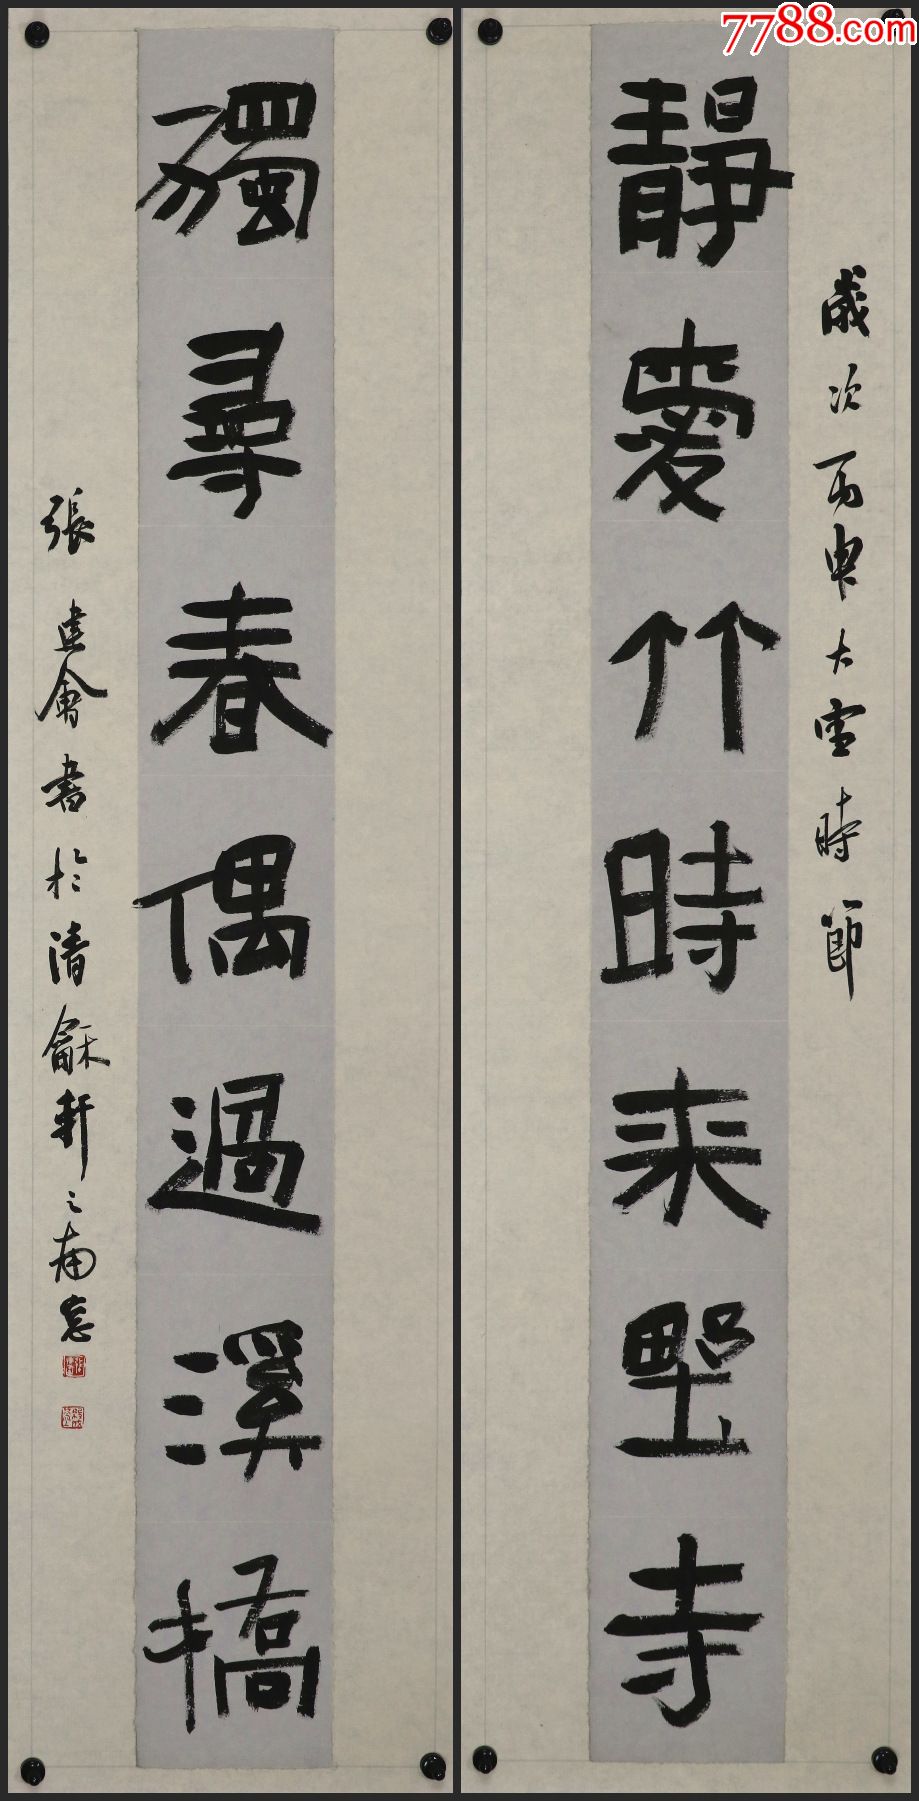 7788.com
歲次丙申大雪時節
靜愛竹時來野寺
獨尋春偶過溪橋
張建會書於清龢軒之南窓